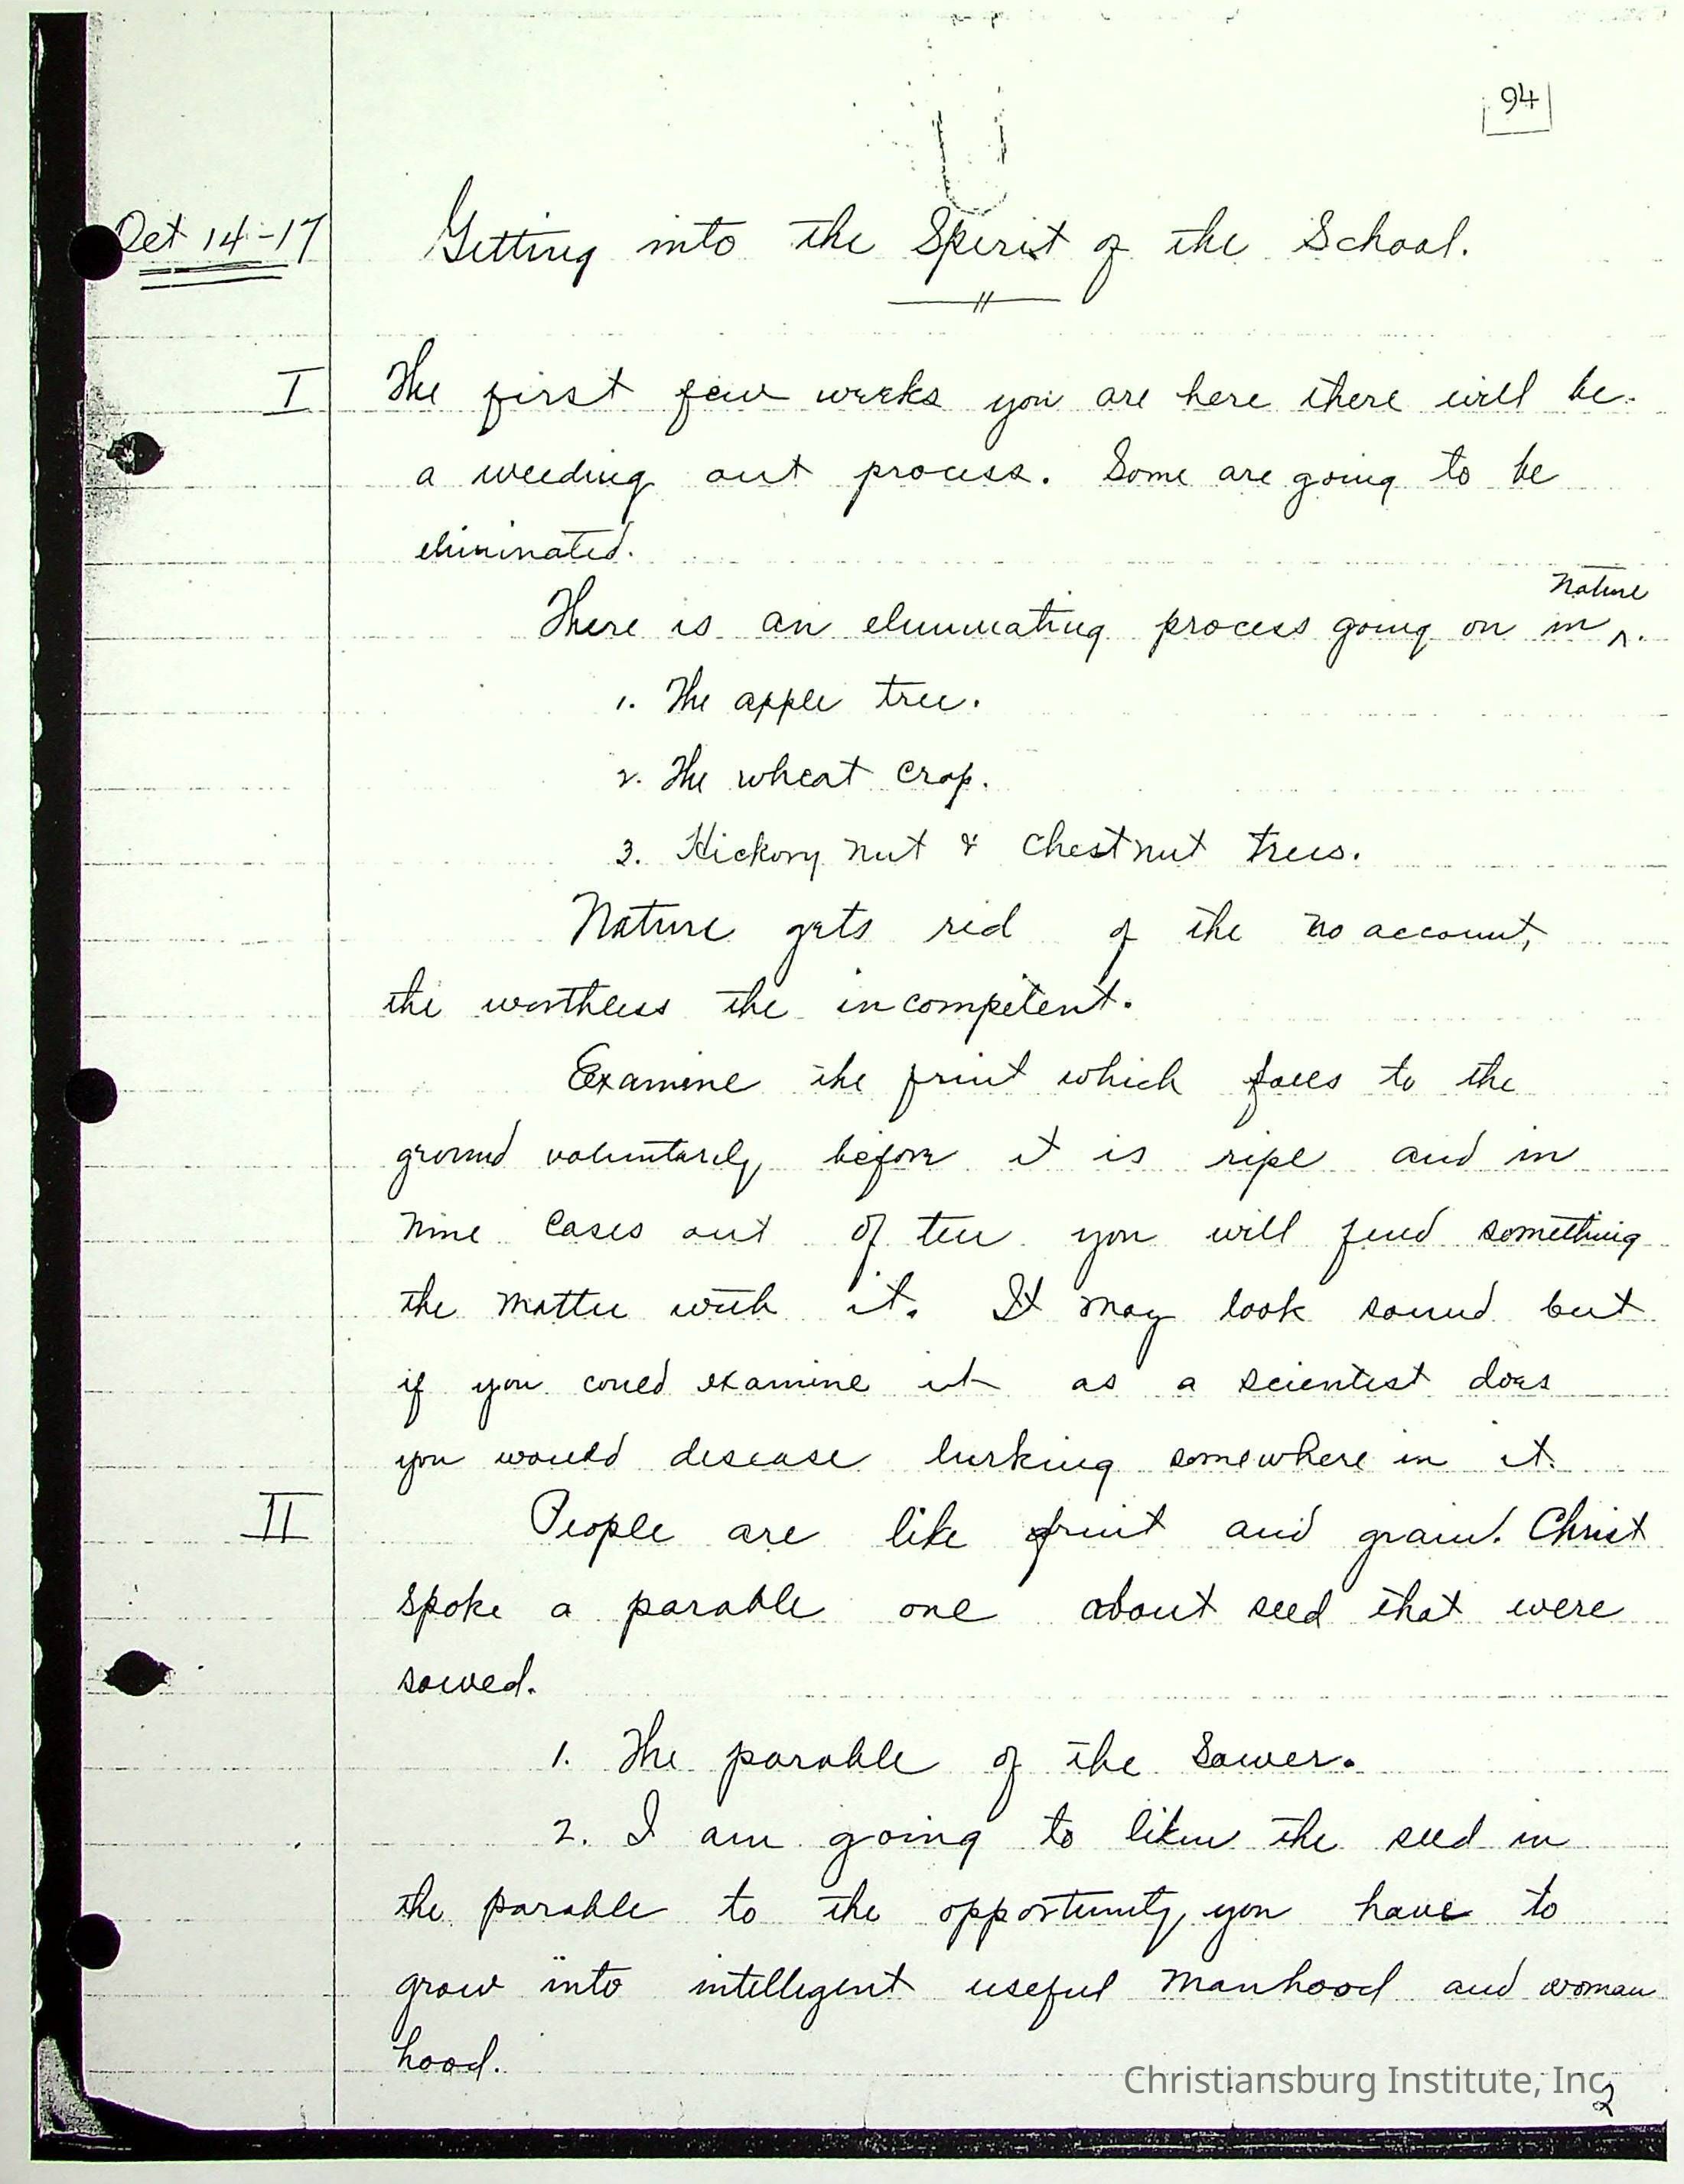 94
Oct 14-17
Getting into the Spirit of the School.
I The first few weeks you are here there will be
a weeding out process. Some are going to be
eliminated.
Nature
There is an eliminating process going on in ^.
1. The apple tree.
2. The wheat crop.
3. Hickory nut & Chestnut trees.
Nature gets rid of the no account,
the worthless the incompetent.
Examine the fruit which falls to the
ground voluntarily before it is ripe and in
nine cases out of ten you will find something
the matter with it. It may look sound but
if you could examine it as a scientist does
you would disease lurking somewhere in it.
II People are like fruit and grain. Christ
spoke a parable one about seed that were
sowed.
1. The parable of the Sower.
2. I am going to liken the seed in
the parable to the opportunity you have to
grow into intelligent useful manhood and woman
hood.
Christiansburg Institute, Inc
2